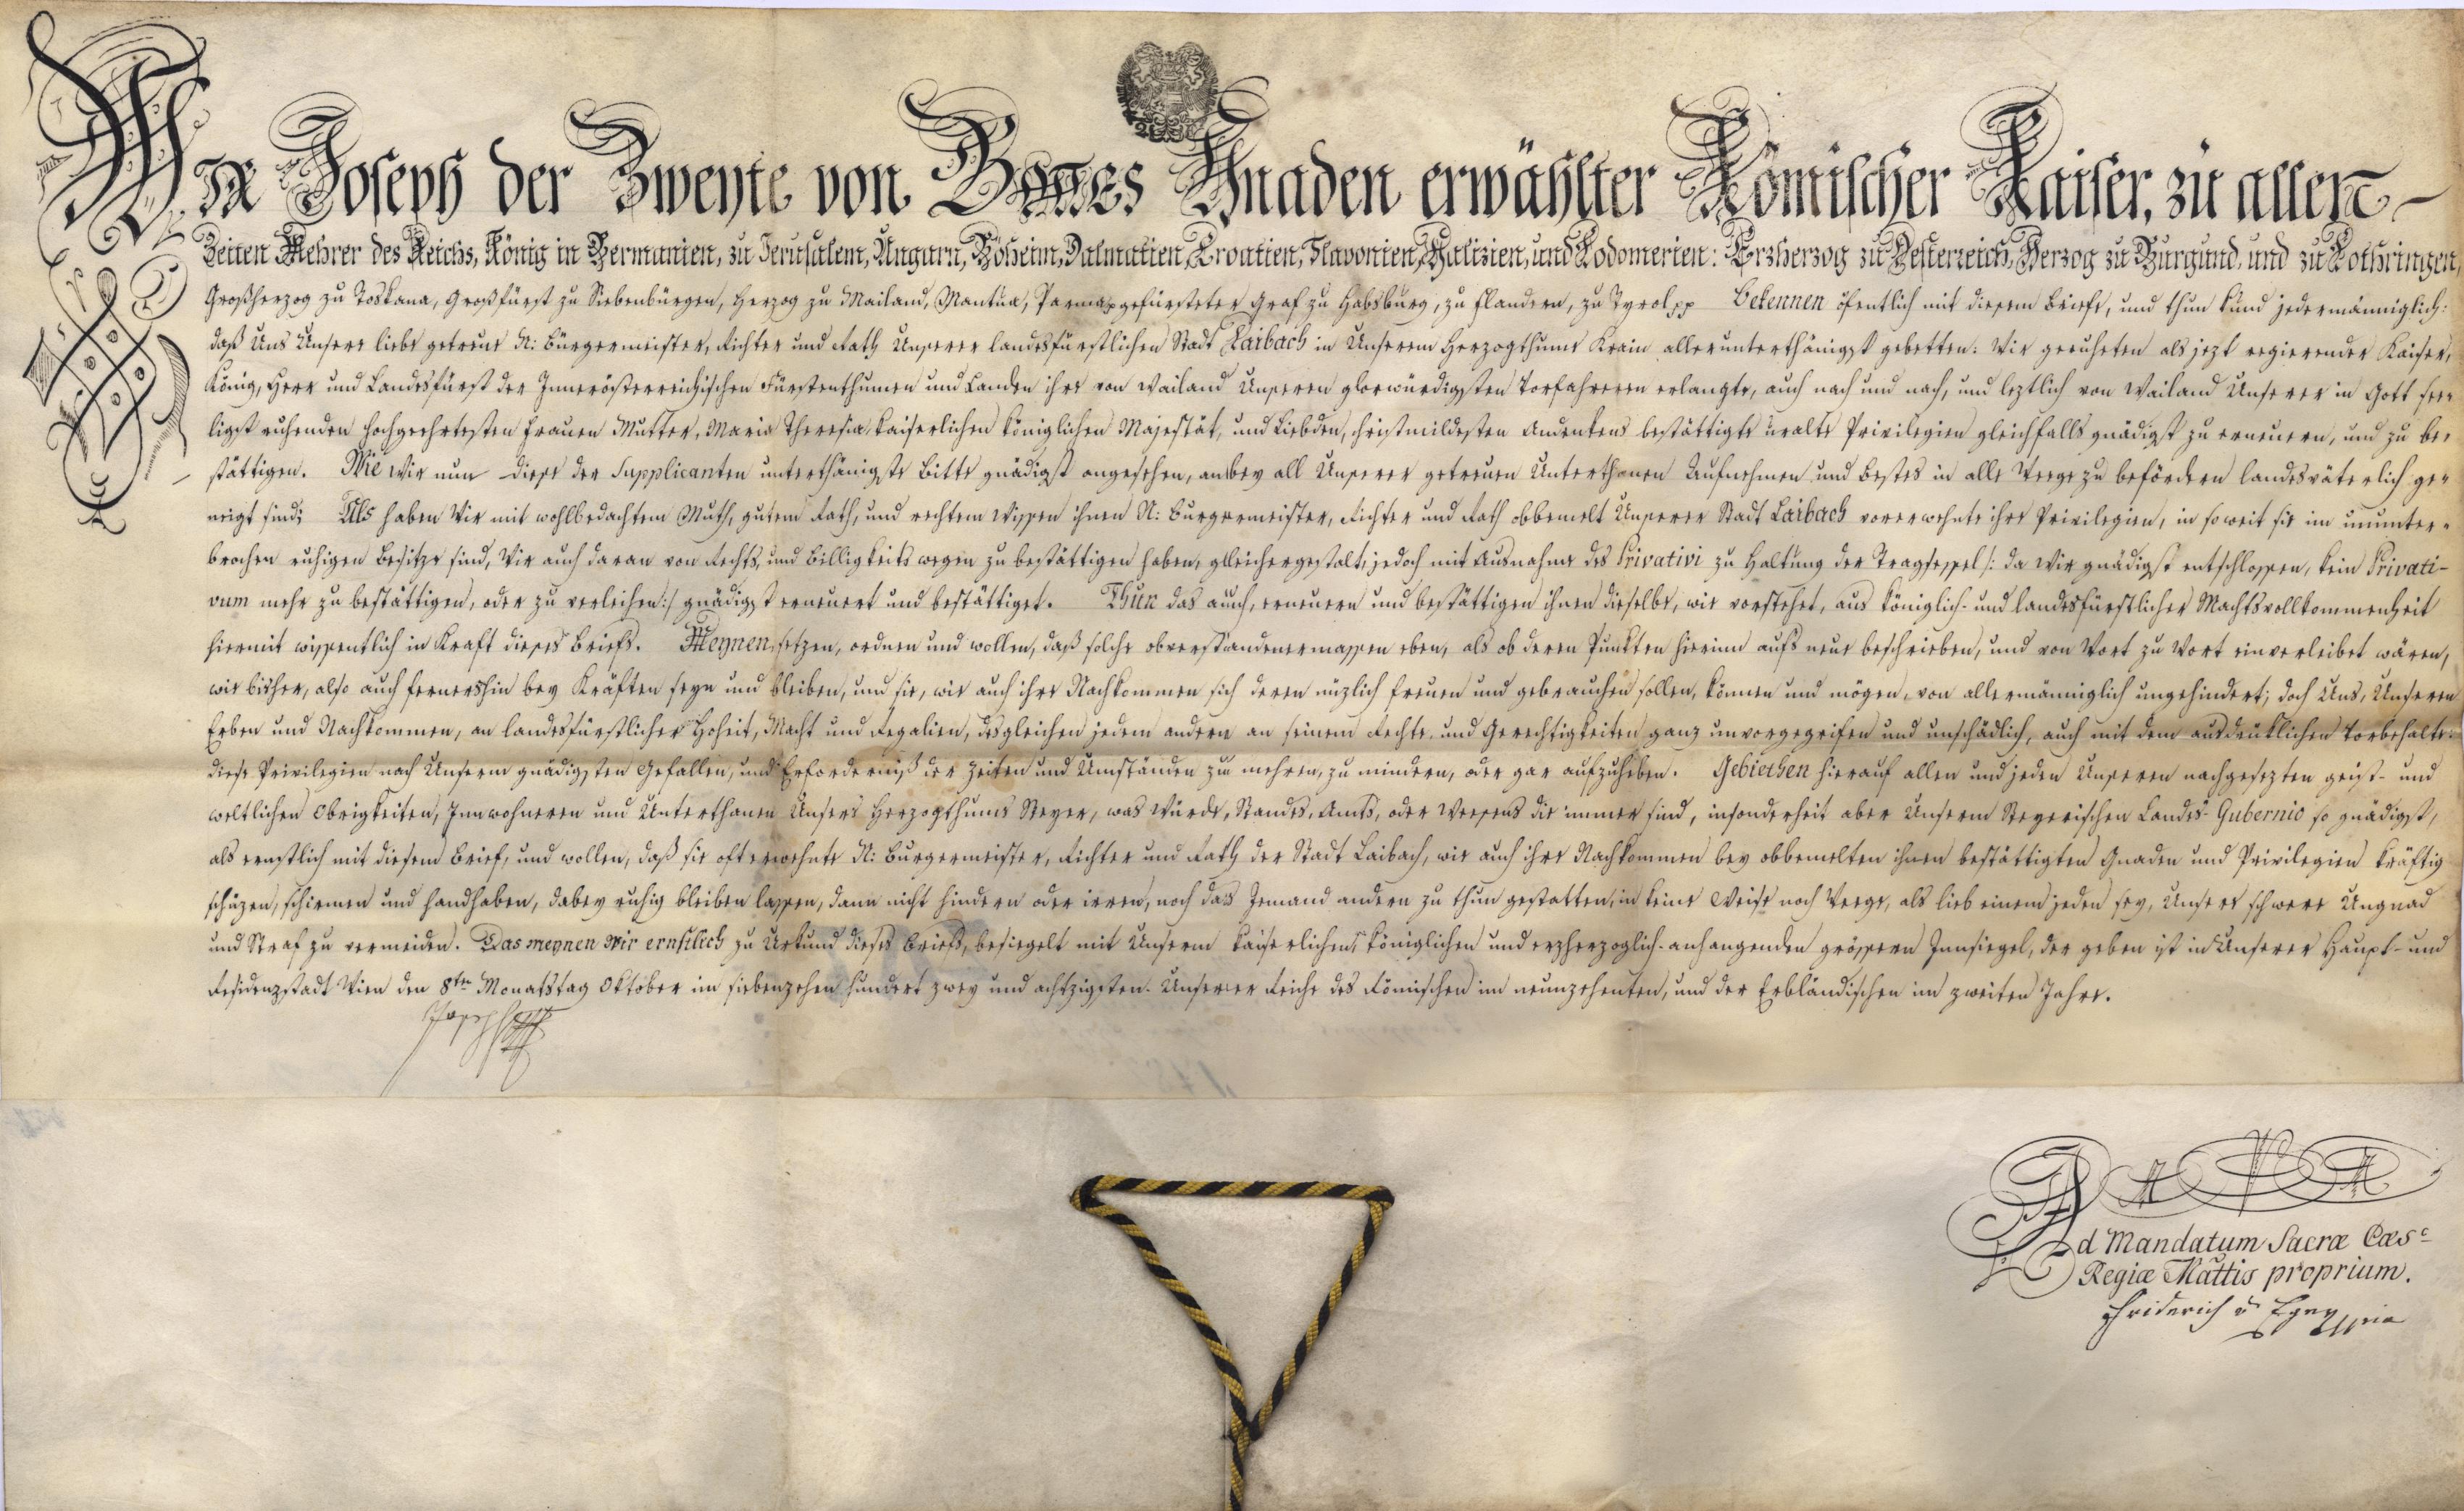 Wir Joseph der Zweyte von Gottes Gnaden erwählter Römischer Kaiser, zu allen
Zeiten Mehrer des Reichs, König in Germanien, zu Jerusalem, Ungarn, Böheim, Dalmatien, Kroatien, Slavonien, Galizien, und Lodomerien: Erzherzog zu Oesterreich, Herzog zu Burgund, und zu Lothringen,
Großherzog zu Toskana, Großfürst zu Siebenbürgen, Herzog zu Mailand, Mantua, Parma p gefürsteter Graf zu Habsburg, zu Flandern, zu Tyrol pp Bekennen öfentlich mit diesem Briefe, und thun kund jedermänniglich:
daß Uns Unsere liebe getreue N: Bürgermeister, Richter und Rath Unserer landesfürstlichen Stadt Laibach in Unserem Herzogthume Krain allerunterthänigst gebetten: Wir geruheten als jezt regierender Kaiser,
König, Herr und Landesfürst der Innerösterreichischen Fürstenthumen und Landen ihre von Wailand Unseren glorwürdigsten Vorfahreren erlangte, auch nach und nach, und leztlich von Wailand Unserer in Gott see-
ligst ruhenden hochgeehrtesten Frauen Mutter, Maria Theresia kaiserlichen königlichen Majestät, und Liebden, christmildesten Andenkens bestättigte uralte Privilegien gleichfalls gnädigst zu erneuern, und zu be-
stättigen. Wie wir nun diese der Supplicanten unterthänigste Bitte gnädigst angesehen, anbey all Unserer getreuen Unterthanen Aufnehmen und Bestes in alle Weege zu befördern landesväterlich ge-
neigt sind; Als haben Wir mit wohlbedachtem Muth, gutem Rath, und rechtem Wissen ihnen N: Burgermeister, Richter und Rath obbemelt Unserer Stadt Laibach vorerwehnte ihre Privilegien, in soweit sie im ununter-
brochen ruhigen Besitze sind, Wir auch daran von Rechts, und Billigkeits wegen zu bestättigen haben, gleichergestalt, jedoch mit Ausnahme des Privativi zu Haltung der Tragsessel /: da Wir gnädigst entschlossen, kein Privati-
vum mehr zu bestättigen, oder zu verleihen :/ gnädigst erneuert und bestättiget. Thun das auch, erneuern und bestättigen ihnen dieselbe, wie vorstehet, aus königlich- und landesfürstlicher Machtsvollkommenheit
hiermit wissentlich in Kraft dieses Briefs. Meynen, setzen, ordnen und wollen, daß solche obverstandenermassen eben, als ob deren Punkten hierinn aufs neue beschrieben, und von Wort zu Wort einverleibet wären,
wie bisher, also auch fernershin bey Kräften seyn und bleiben, und sie, wie auch ihre Nachkommen sich deren nüzlich freuen und gebrauchen sollen, können und mögen, von allermänniglich ungehindert; doch Uns, Unseren
Erben und Nachkommen, an landesfürstlicher Hoheit, Macht und Regalien, desgleichen jedem andern an seinem Rechte und Gerechtigkeiten ganz unvorgegrifen und unschädlich, auch mit dem ausdrüklichen Vorbehalte:
diese Privilegien nach Unserm gnädigsten Gefallen, und Erforderniß der Zeiten und Umständen zu mehren, zu mindern, oder gar aufzuheben. Gebiethen hierauf allen und jeden Unseren nachgesezten geist- und
weltlichen Obrigkeiten, Innwohneren und Unterthanen Unsers Herzogthums Steyer, was Würde, Standes, Amts, oder Weesens die immer sind, insonderheit aber Unserm Steyerischen Landes-Gubernio so gnädigst,
als ernstlich mit diesem Brief, und wollen, daß sie ofterwehnte N: Burgermeister, Richter und Rath der Stadt Laibach, wie auch ihre Nachkommen bey obbemelten ihnen bestättigten Gnaden und Privilegien kräftig
schüzen, schirmen und handhaben, dabey ruhig bleiben lassen, dann nicht hindern oder irren, noch das Jemand andern zu thun gestatten, in keine Weise noch Weege, als lieb einem jeden sey, Unsere schwere Ungnad
und Straf zu vermeiden. Das meynen Wir ernstlich zu Urkund dieses Briefs, besiegelt mit Unserm kaiserlichen, königlichen und erzherzoglich-anhangenden grössern Innsiegel, der geben ist in Unserer Haupt- und
Residenzstadt Wien den 8ten Monatstag Oktober im siebenzehen hundert zwey und achtzigsten. Unserer Reiche des Römischen im neunzehenten, und der Erbländischen im zweiten Jahre.
Joseph
Ad Mandatum Sacræ Cæs:
Regiæ Mattis proprium.
Friderich v